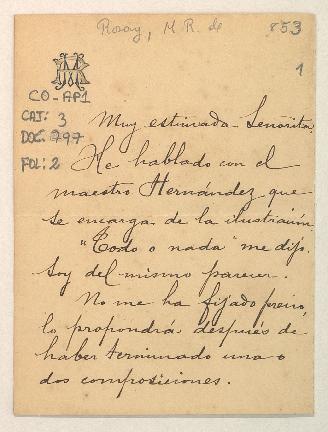 Rosay, M R. de 853
1
CO-AP1
CAJ: 3
DOC: 797
FOL: 2
Muy estimada Señorita:
He hablado con el
maestro Hernandez que
se encarga de la ilustración
"Todo o nada" me dijo.
Soy del mismo parecer.
No me ha fijado precio,
lo propondrá después de
haber terminado una o
dos composiciones.